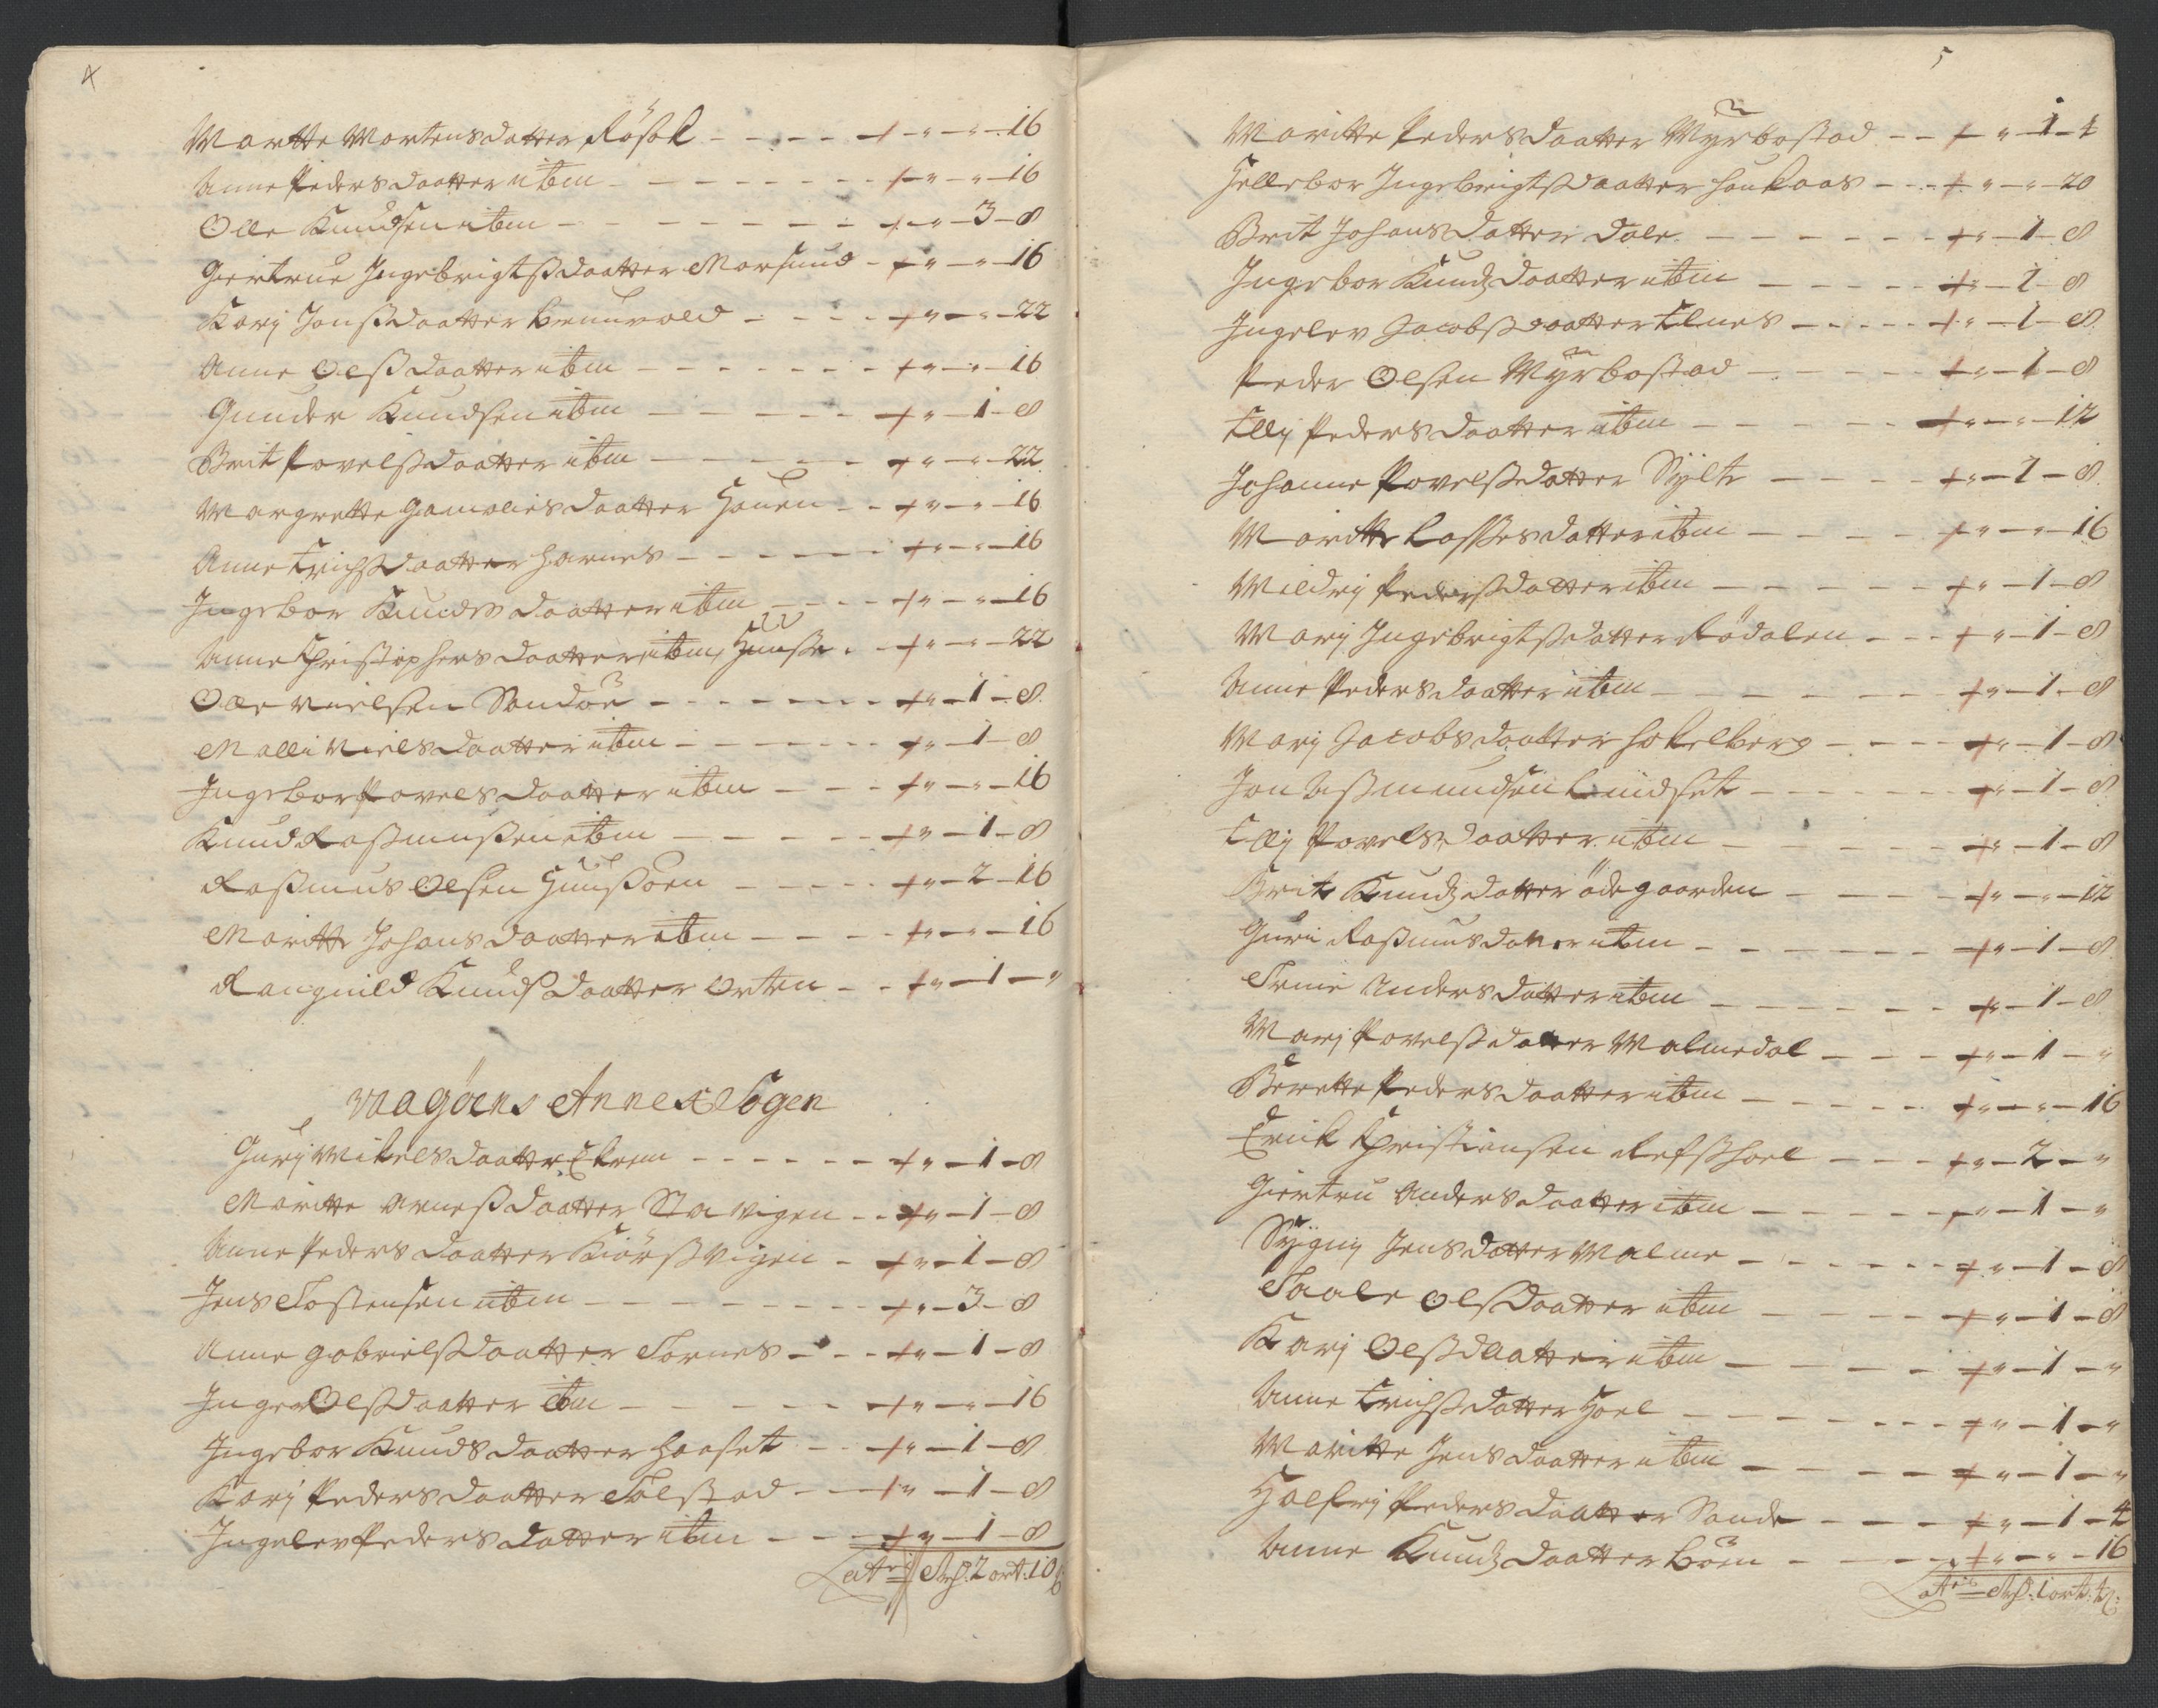 4
Martte Mortensdatter Røsok - - - - + - " - " - 16
Anne Pedersdaatter ibm - - - - + - " - " - 16
Olle Knudsen ibm - - - - + - " - 3 - 8
Giertrue Ingebrigtsdaatter Morsund - + - " - " - 16
Karj Jonsdaatter Brunvold - - - - + - " - " - 22
Anne Olsdaatter ibm - - - - + - " - " - 16
Gunder Knudsen ibm - - - - + - " - 1 - 8
Brit Povelsdaatter ibm - - - - + - " - " - 22
Margrette Gamolies daatter Hauen - - + - " - " - 16
Anne Erichsdaatter Harnes - - - - + - " - " - 16
Ingebor Knudsdaatter ibm - - - + - " - " - 16
Anne Christophersdaatter, ibm, Husse - - + - " - " - 22
Olle Nielsen Sandøe - - - - + - " - 1 - 8
Malli Nielsdaatter ibm - - - - + - " - 1 - 8
Ingebor Povelsdaatter ibm - - - + - " - " - 16
Knud Rasmussen ibm - - - - + - " - 1 - 8
Rasmus Olsen Hussøen - - - - + - " - 2 - 16
Maritte Johansdaatter ibm - - - - + - " - " - 16
Rangnild Knudsdaatter Orten - - + - " - 1 - "
Vaagøens Annex Sogen
Gurj Mikelsdaatter Ekrem - - - - + - " - 1 - 8
Maritte Arnesdaatter Stavigen - - + - " - 1 - 8
Anne Pedersdaatter Kiørsvigen - + - " - 1 - 8
Jens Tostensen ibm - - - - + - " - 3 - 8
Anne Gabrielsdaatter Tornes - - - + - " - 1 - 8
Inger Olsdaatter ibm - - - - + - " - " - 16
Ingebor Knudsdaatter Haaset - - + - " - 1 - 8
Karj Pedersdaatter Tolstad - - + - " - 1 - 8
Ingelev Pedersdatter ibm - - - + - " - 1 - 8
Lattris 2 ort. 10
5
Maritte Pedersdaatter Myrbostad - - + - " - 1 - 4
Hellebor Ingebrigtsdaatter Haukaas - - - + - " - " - 20
Brit Johansdatter Dale - - - - + - " - 1 - 8
Ingebor Knudzdaatter ibm - - - - + - " - 1 - 8
Ingelev Jacobsdaatter Elnes - - - - + - " - 1 - 8
Peder Olsen Myrbostad - - - - + - " - 1 - 8
Ellj Pedersdaatter ibm - - - - + - " - " - 12
Johanne Povelsdatter Sylte - - - - + - " - 1 - 8
Maritte Lassesdatter ibm - - - - + - " - " - 16
Mildrj Pedersdatter ibm - - - - + - " - 1 - 8
Marj Ingebrigtsdatter Rødalen - - - + - " - 1 - 8
Anne Pedersdaatter ibm - - - - + - " - 1 - 8
Marj Jacobsdaatter Hokelberg - - - + - " - 1 - 8
Jon Asmundsen Lindset - - - - + - " - 1 - 8
Ellj Povelsdaatter ibm - - - - + - " - 1 - 8
Brit Knudzdatter ødegaarden - - - - + - " - " - 12
Guri Rasmusdatter ibm - - - - + - " - 1 - 8
Trine Andersdatter ibm - - - - + - " - 1 - 8
Marj Povelsdatter Malmedal - - - + - " - 1 - "
Berette Pedersdaatter ibm - - - - + - " - " - 16
Erick Christiansen Refshoel - - - + - " - 2 - "
Giertru Andersdaatter ibm - - - - + - " - 1 - "
Sygnj Jensdatter Malme - - - - + - " - 1 - 8
Taale Olsdaatter ibm - - - - + - " - 1 - 8
Karj Olsdaatter ibm - - - - + - " - 1 - "
Anne Erichsdatter Hoel - - - - + - " - 1 - "
Maritte Jensdaatter ibm - - - - + - " - 1 - "
Halfrj Pedersdaatter Sande - - - - + - " - 1 - 4
Anne Knudzdaatter Bøen - - - - + - " - " - 16
Lattris 1 ort.